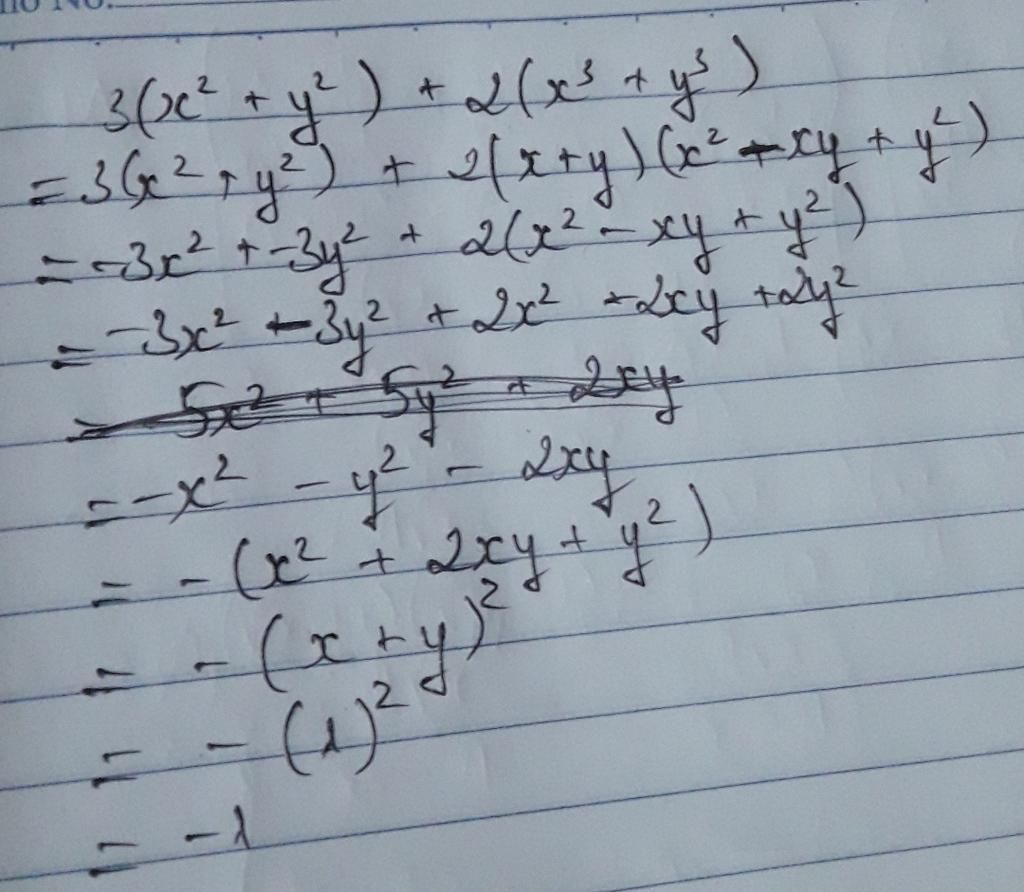 no No.
3(x² + y²) + 2(x³ + y³)
= 3(x² + y²) + 2(x + y)(x² - xy + y²)
= -3x² + -3y² + 2(x² - xy + y²)
= -3x² - 3y² + 2x² - 2xy + 2y²
= 5x² + 5y² + 2xy
= -x² - y² - 2xy
= - (x² + 2xy + y²)
= - (x + y)²
= - (1)²
= -1